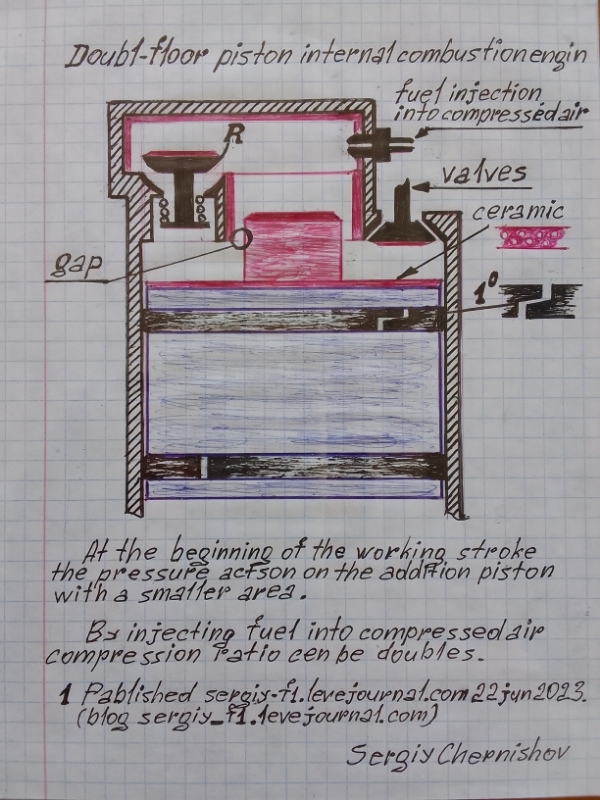 Doubl-floor piston internal combustion engin
fuel injection
into compressed air
R
valves
ceramic
gap
1º
At the beginning of the working stroke
the pressure actson on the addition piston
with a smaller area.
By injecting fuel into compressed air
compression ratio cen be doubles.
1 Pablished sergiy-f1.levejournal.com 22 jun 2023.
(blog sergiy_f1.levejournal.com)
Sergiy Chernishov